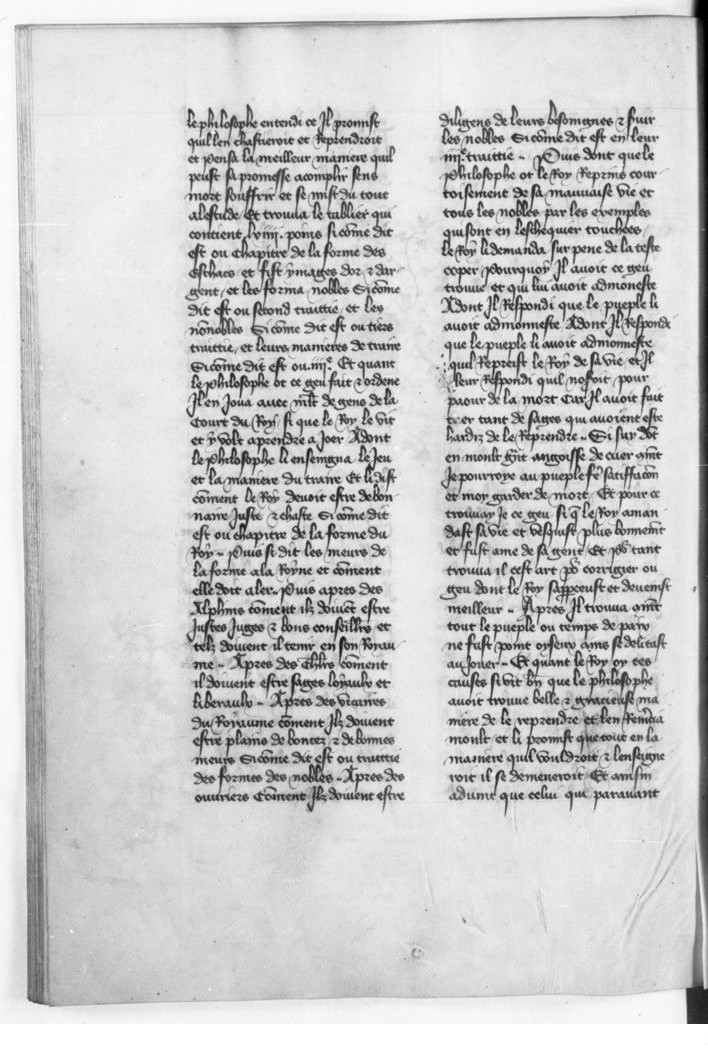 le philosophe entendi ce Il promist
quil len chastieroit et Reprendroit
et pensa la meilleur maniere quil
peust sa promesse acomplir sens
mort souffrir et se mist du tout
alestude Et trouua le tablier qui
contient .lxiiii. poins si cōme dit
est ou chapitre de la forme des
Eschacs et fist ymages dor ⁊ dar-
gent / et les forma nobles Si cōme
dit est ou second traittie / et les
nōnobles Si cōme dit est ou tiers
traittie / et leurs manieres de traire
Si cōme dit est ou .iiii.e Et quant
le philosophe ot ce geu fait ⁊ ordene
Il en Joua auec mlt de gens de la
Court du Roy / si que le Roy le vit
et y volt aprendre a Joer Adont
le philosophe li enseingna le Jeu
et la maniere du traire Et li dist
cōment le Roy deuoit estre debon-
naire Juste ⁊ chaste Si cōme dit
est ou chapitre de la forme du
Roy .. Puis si dit les meurs de
la forme a la Royne et cōment
elle doit aler .. Puis apres des
Alphins cōment ilz doiuēt estre
Justes Juges ⁊ bons conseilliers et
telz doiuent il tenir en son Royau-
me .. Apres des Chlrs cōment
il doiuent estre sages loyaulx et
liberaulx .. Apres des vicaires
du Royaume cōment Ilz doiuent
estre plains de bontez ⁊ de bonnes
meurs Si cōme dit est ou traittie
des formes des nobles .. Apres des
ouuriers Cōment Ilz doiuent estre
diligens de leurs besoingnes ⁊ seruir
les nobles Si cōme dit est en leur
iiii.e traittie .. Puis dont que le
Philosophe ot le Roy Reprins cour-
toisement de sa mauuaise vie et
tous les nobles par les exemples
qui sont en leschequier touchees /
le Roy li demanda sur pene de la teste
coper / pourquoy Il auoit ce geu
trouue / et qui lui auoit admoneste
Adont Il Respondi que le pueple li
auoit admonneste Adont Il Respondi
que le pueple li auoit admonneste
quil Repreist le Roy de sa vie / et Il
leur Respondi quil nosoit / pour
paour de la mort Car Il auoit fait
tuer tant de sages qui auoient este
hardiz de le Reprendre .. Si suy dōt
en moult grāt angoisse de cuer cōmēt
Je pourroye au pueple fe satiffacōn
et moy garder de mort / Et pour ce
trouuay Je ce geu si q̄ le Roy aman-
dast sa vie et vesquist plus bonemēt
et fust ame de sa gent / Et por tant
trouua il cest art por corrigier ou
geu dont le Roy sapperceust et deuenist
meilleur .. Apres Il trouua cōmēt
tout le pueple ou temps de paix
ne fust point oyseux ains se delitast
au jouer .. Et quant le Roy oy ces
causes si vit bn̄ que le philosophe
auoit trouue belle ⁊ gracieuse ma
niere de le reprendre et len Remercia
moult / et li promist que tout en la
maniere quil vouldroit ⁊ lenseigne
roit il se demeneroit / Et ainsin
aduint que celui qui parauant